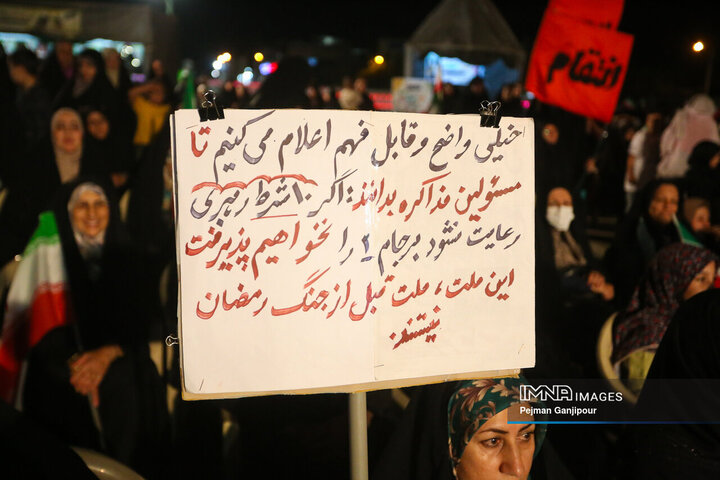 خیلی واضح و قابل فهم اعلام می کنیم تا
مسئولین مذاکره بدانند: اگر ۱۰ شرط رهبری
رعایت نشود برجام ۲ را نخواهیم پذیرفت
این ملت، ملت قبل از جنگ رمضان
نیستند
انتقام
IMNA IMAGES
Pejman Ganjipour